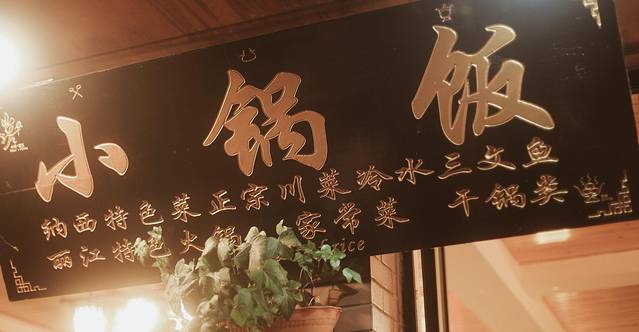 小锅饭
纳西特色菜正宗川菜冷水三文鱼
丽江特色火锅 家常菜 干锅类
rice